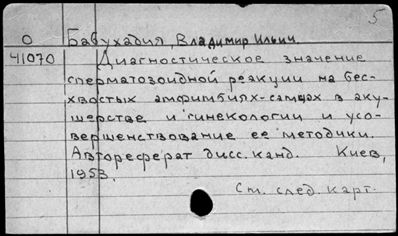 5
О Бабухадия, Владимир Ильич.
41070 Диагностическое значение
сперматозоидной реакции на бес-
хвостых амфибиях-самцах в аку-
шерстве и гинекологии и усо-
вершенствование ее методики.
Автореферат дисс. канд. Киев,
1953.
См. след. карт.